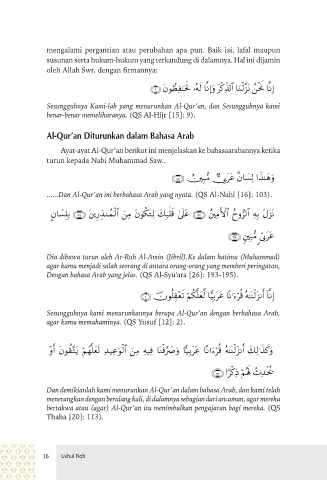 mengalami pergantian atau perubahan apa pun. Baik isi, lafal maupun
susunan serta hukum-hukum yang terkandung di dalamnya. Hal ini dijamin
oleh Allah Swt. dengan firmannya:
إِنَّا نَحْنُ نَزَّلْنَا ٱلذِّكْرَ وَإِنَّا لَهُۥ لَحَٰفِظُونَ ۝
Sesungguhnya Kami-lah yang menurunkan Al-Qur'an, dan Sesungguhnya kami
benar-benar memeliharanya. (QS Al-Hijr [15]: 9).
Al-Qur'an Diturunkan dalam Bahasa Arab
Ayat-ayat Al-Qur'an berikut ini menjelaskan ke bahasaarabannya ketika
turun kepada Nabi Muhammad Saw..
وَهَٰذَا لِسَانٌ عَرَبِىٌّ مُّبِينٌ
......Dan Al-Qur'an ini berbahasa Arab yang nyata. (QS Al-Nahl [16]: 103).
نَزَلَ بِهِ ٱلرُّوحُ ٱلْأَمِينُ ۝ عَلَىٰ قَلْبِكَ لِتَكُونَ مِنَ ٱلْمُنذِرِينَ ۝ بِلِسَانٍ
عَرَبِىٍّ مُّبِينٍ ۝
Dia dibawa turun oleh Ar-Ruh Al-Amin (Jibril), Ke dalam hatimu (Muhammad)
agar kamu menjadi salah seorang di antara orang-orang yang memberi peringatan,
Dengan bahasa Arab yang jelas. (QS Al-Syu'ara [26]: 193-195).
إِنَّآ أَنزَلْنَٰهُ قُرْءَٰنًا عَرَبِيًّا لَّعَلَّكُمْ تَعْقِلُونَ ۝
Sesungguhnya kami menurunkannya berupa Al-Qur'an dengan berbahasa Arab,
agar kamu memahaminya. (QS Yusuf [12]: 2).
وَكَذَٰلِكَ أَنزَلْنَٰهُ قُرْءَانًا عَرَبِيًّا وَصَرَّفْنَا فِيهِ مِنَ ٱلْوَعِيدِ لَعَلَّهُمْ يَتَّقُونَ أَوْ
يُحْدِثُ لَهُمْ ذِكْرًا ۝
Dan demikianlah kami menurunkan Al-Qur'an dalam bahasa Arab, dan kami telah
menerangkan dengan berulang kali, di dalamnya sebagian dari ancaman, agar mereka
bertakwa atau (agar) Al-Qur'an itu menimbulkan pengajaran bagi mereka. (QS
Thaha [20]: 113).
16 Ushul Fiqh